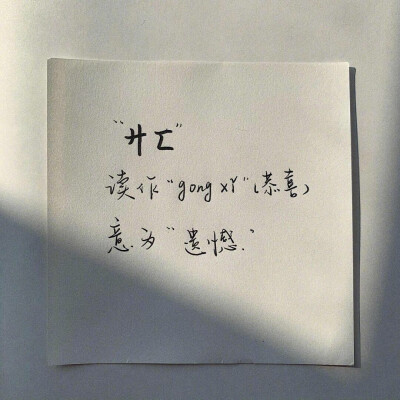 “廾匸”
读作“gong xǐ”(恭喜)
意为“遗憾.”